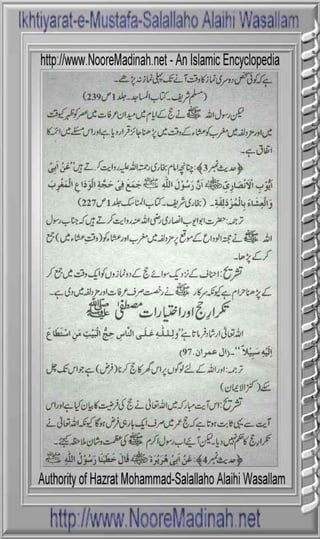 Ikhtiyarat-e-Mustafa-Salallaho Alaihi Wasallam
http://www.NooreMadinah.net - An Islamic Encyclopedia
ہے کہ کوئی شخص دوسری نماز کا وقت آنے تک پہلی نماز نہ پڑھے۔
(مسلم شریف۔ کتاب المساجد۔ جلد 1 ص 239)
لیکن رسول اللہ ﷺ نے حج کے ایام میں میدان عرفات میں عصر کو ظہر کے وقت
میں اور مزدلفہ میں مغرب کو عشاء کے وقت میں پڑھنا جائز قرار دیا ہے اور اس مسئلے میں ائمہ کا
اتفاق ہے۔
﴿حدیث نمبر 3﴾: چنانچہ امام بخاری رحمۃ اللہ علیہ روایت کرتے ہیں "عَنْ اَبِیْ
اَیُّوْبِ الْاَنْصَارِیِّ ﷺ اَنَّ رَسُوْلَ اللّٰهِ ﷺ جَمَعَ فِیْ حَجَّةِ الْوَدَاعِ الْمَغْرِبَ
وَالْعِشَاءَ بِالْمُزْدَلِفَةِ۔ (بخاری شریف۔ کتاب المناسک جلد 1 ص 227)
ترجمہ: حضرت ابوایوب انصاری رضی اللہ عنہ روایت کرتے ہیں کہ جناب رسول
اللہ ﷺ نے حجۃ الوداع کے موقع پر مزدلفہ میں مغرب اور عشاء کو (وقت عشاء میں) جمع
کر کے پڑھا۔
تشریح: احناف کے نزدیک سوائے حج کے دو نمازوں کو ایک وقت میں جمع کر
کے پڑھنا حرام ہے کیونکہ سرکار ﷺ نے رخصت صرف عرفات اور مزدلفہ میں دی ہے۔
تکرار حج اور اختیارات مصطفیٰ ﷺ
اللہ تعالیٰ ارشاد فرماتا ہے "وَلِلّٰهِ عَلَی النَّاسِ حِجُّ الْبَيْتِ مَنِ اسْتَطَاعَ
اِلَيْهِ سَبِيْلًا"۔ (آل عمران۔ 97)
ترجمہ: اور اللہ کے لئے لوگوں پر اس گھر کا حج کرنا (فرض) ہے جو اس تک چل
سکے (کنزالایمان)
تشریح: اس آیت مبارکہ میں اللہ تعالیٰ نے حج کی فرضیت کا بیان کیا ہے اور اس
آیت سے یہی ثابت ہوتا ہے کہ حج عمر میں صرف ایک بار ہی فرض ہوگا کیونکہ اللہ تعالیٰ نے
تکرار حج کا حکم نہیں دیا۔ لیکن آئیے اب رسول اکرم ﷺ کی عظمت و شان ملاحظہ کیجئے۔
﴿حدیث نمبر 4﴾: عَنْ اَبِیْ هُرَيْرَةَ ﷺ قَالَ خَطَبَنَا رَسُوْلُ اللّٰهِ ﷺ
Authority of Hazrat Mohammad-Salallaho Alaihi Wasallam
http://www.NooreMadinah.net